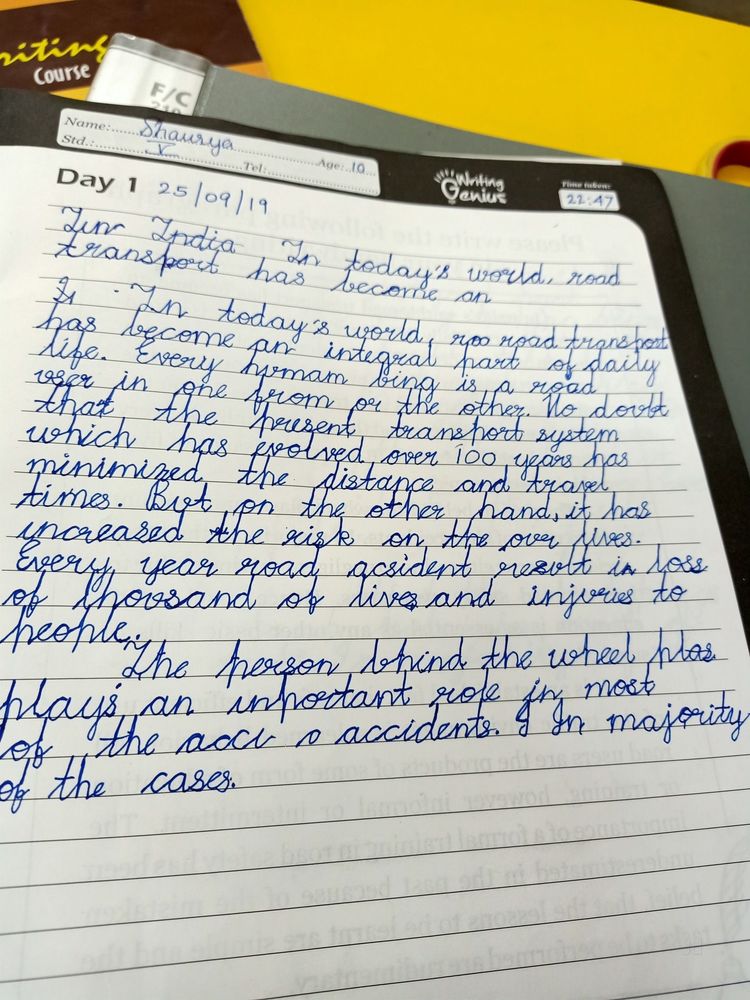 riting
Course
F/C
Name: Shaurya
Std.: V Tel: Age: 10
Writing Genius
Time taken:
22:47
Day 1 25/09/19
In India In today's world, road
transport has become an
I In today's world, roo road transport
has become an integral part of daily
life. Every humam bing is a road
user in one from or the other. No doubt
that the present transport system
which has evolved over 100 years has
minimized the distance and travel
times. But on the other hand, it has
increased the risk on the over lives.
Every year road acsident result in loss
of thousand of lives and injuries to
people.
The person bhind the wheel plas
plays an inportant role in most
of the acci o accidents. I In majority
of the cases.